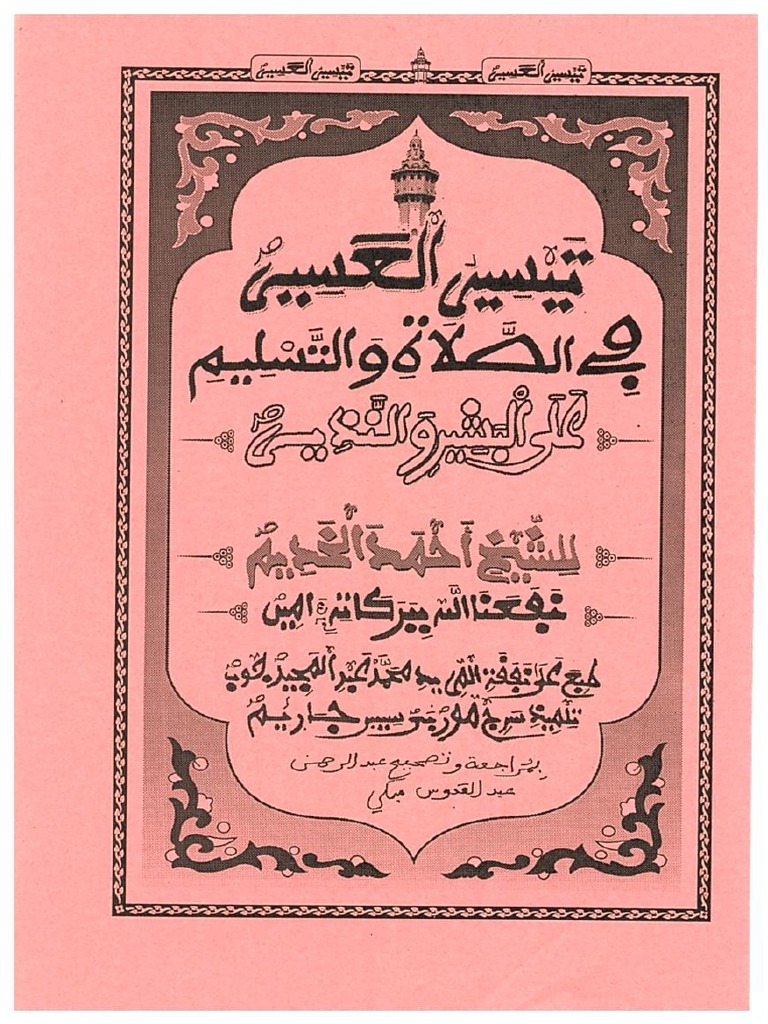 تيسير العسير
تيسير العسير
تَيْسِير العَسِير
في الصَّلَاةِ وَالتَّسْلِيمِ
عَلَى البَشِيرِ وَالنَّذِيرِ
لِلشَّيْخِ أَحْمَدَ الخَدِيمِ
نَفَعَنَا اللَّه بِبَرَكَاتِهِ ءامِين
طبع عَلَى نَفَقَةِ المريد مُحَمَّدُ عَبْدِ المجيد
تلميذ سرج
بمراجعة وتصحيح عبد الرحمن
عبد القدوس مبكي